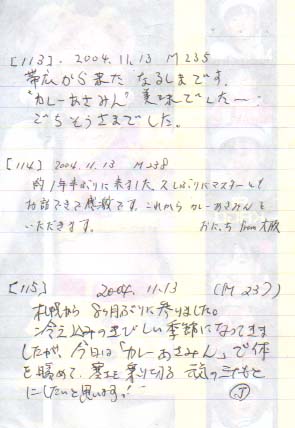 [113]. 2004.11.13 M235
帯広から来た なるしまです。
"カレーあさみん" 美味でした〜。
ごちそうさまでした。
[114] 2004.11.13 M238
約1年半ぶりに来ました。久しぶりにマスターとも
お話できて感激です。これからカレーあさみんを
いただきます。 おにっち from 大阪
[115] 2004.11.13 (M237)
札幌から 8ヶ月ぶりに参りました。
冷え込みのきびしい季節になってきま
したが、今日は「カレーあさみん」で体
を暖めて、寒さを乗り切る 元気の三もと
にしたいと思いますっ!